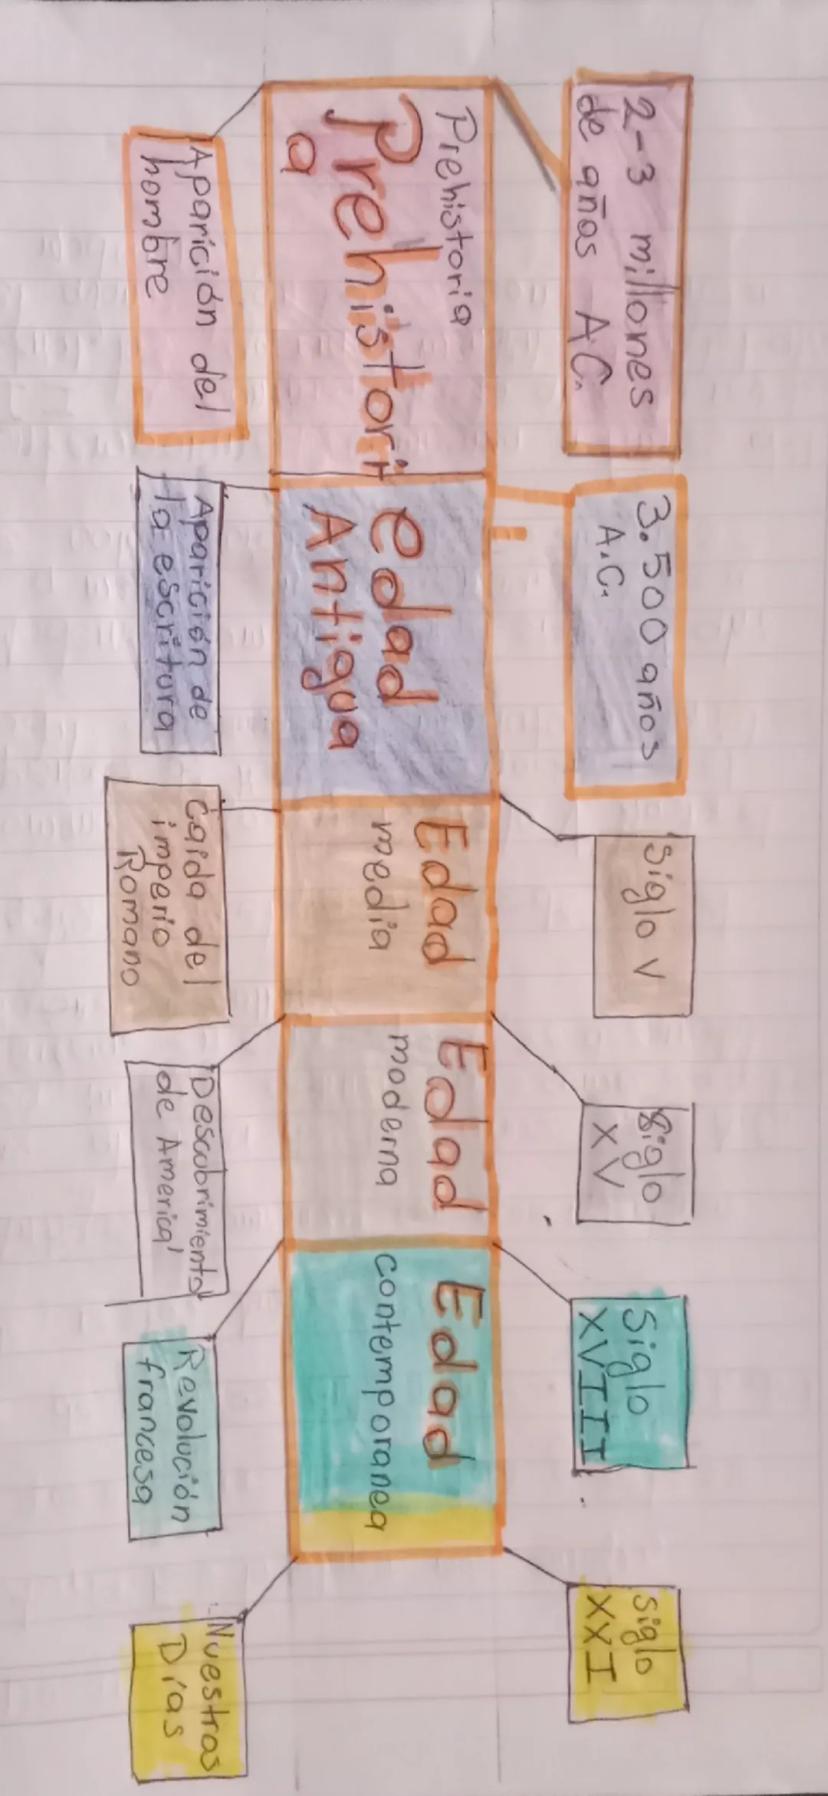 2-3 millones
de años AC.
3.500 años
A.C.
Siglo V
Siglo
XV
Siglo
XVIII
Siglo
XXI
Prehistoria
Prehistori
a
edad
Antigua
Edad
media
Edad
moderna
Edad
contemporanea
Aparición del
hombre
Aparición de
la escritura
Caida del
imperio
Romano
Descubrimiento
de America
Revolución
francesa
Nuestros
Días